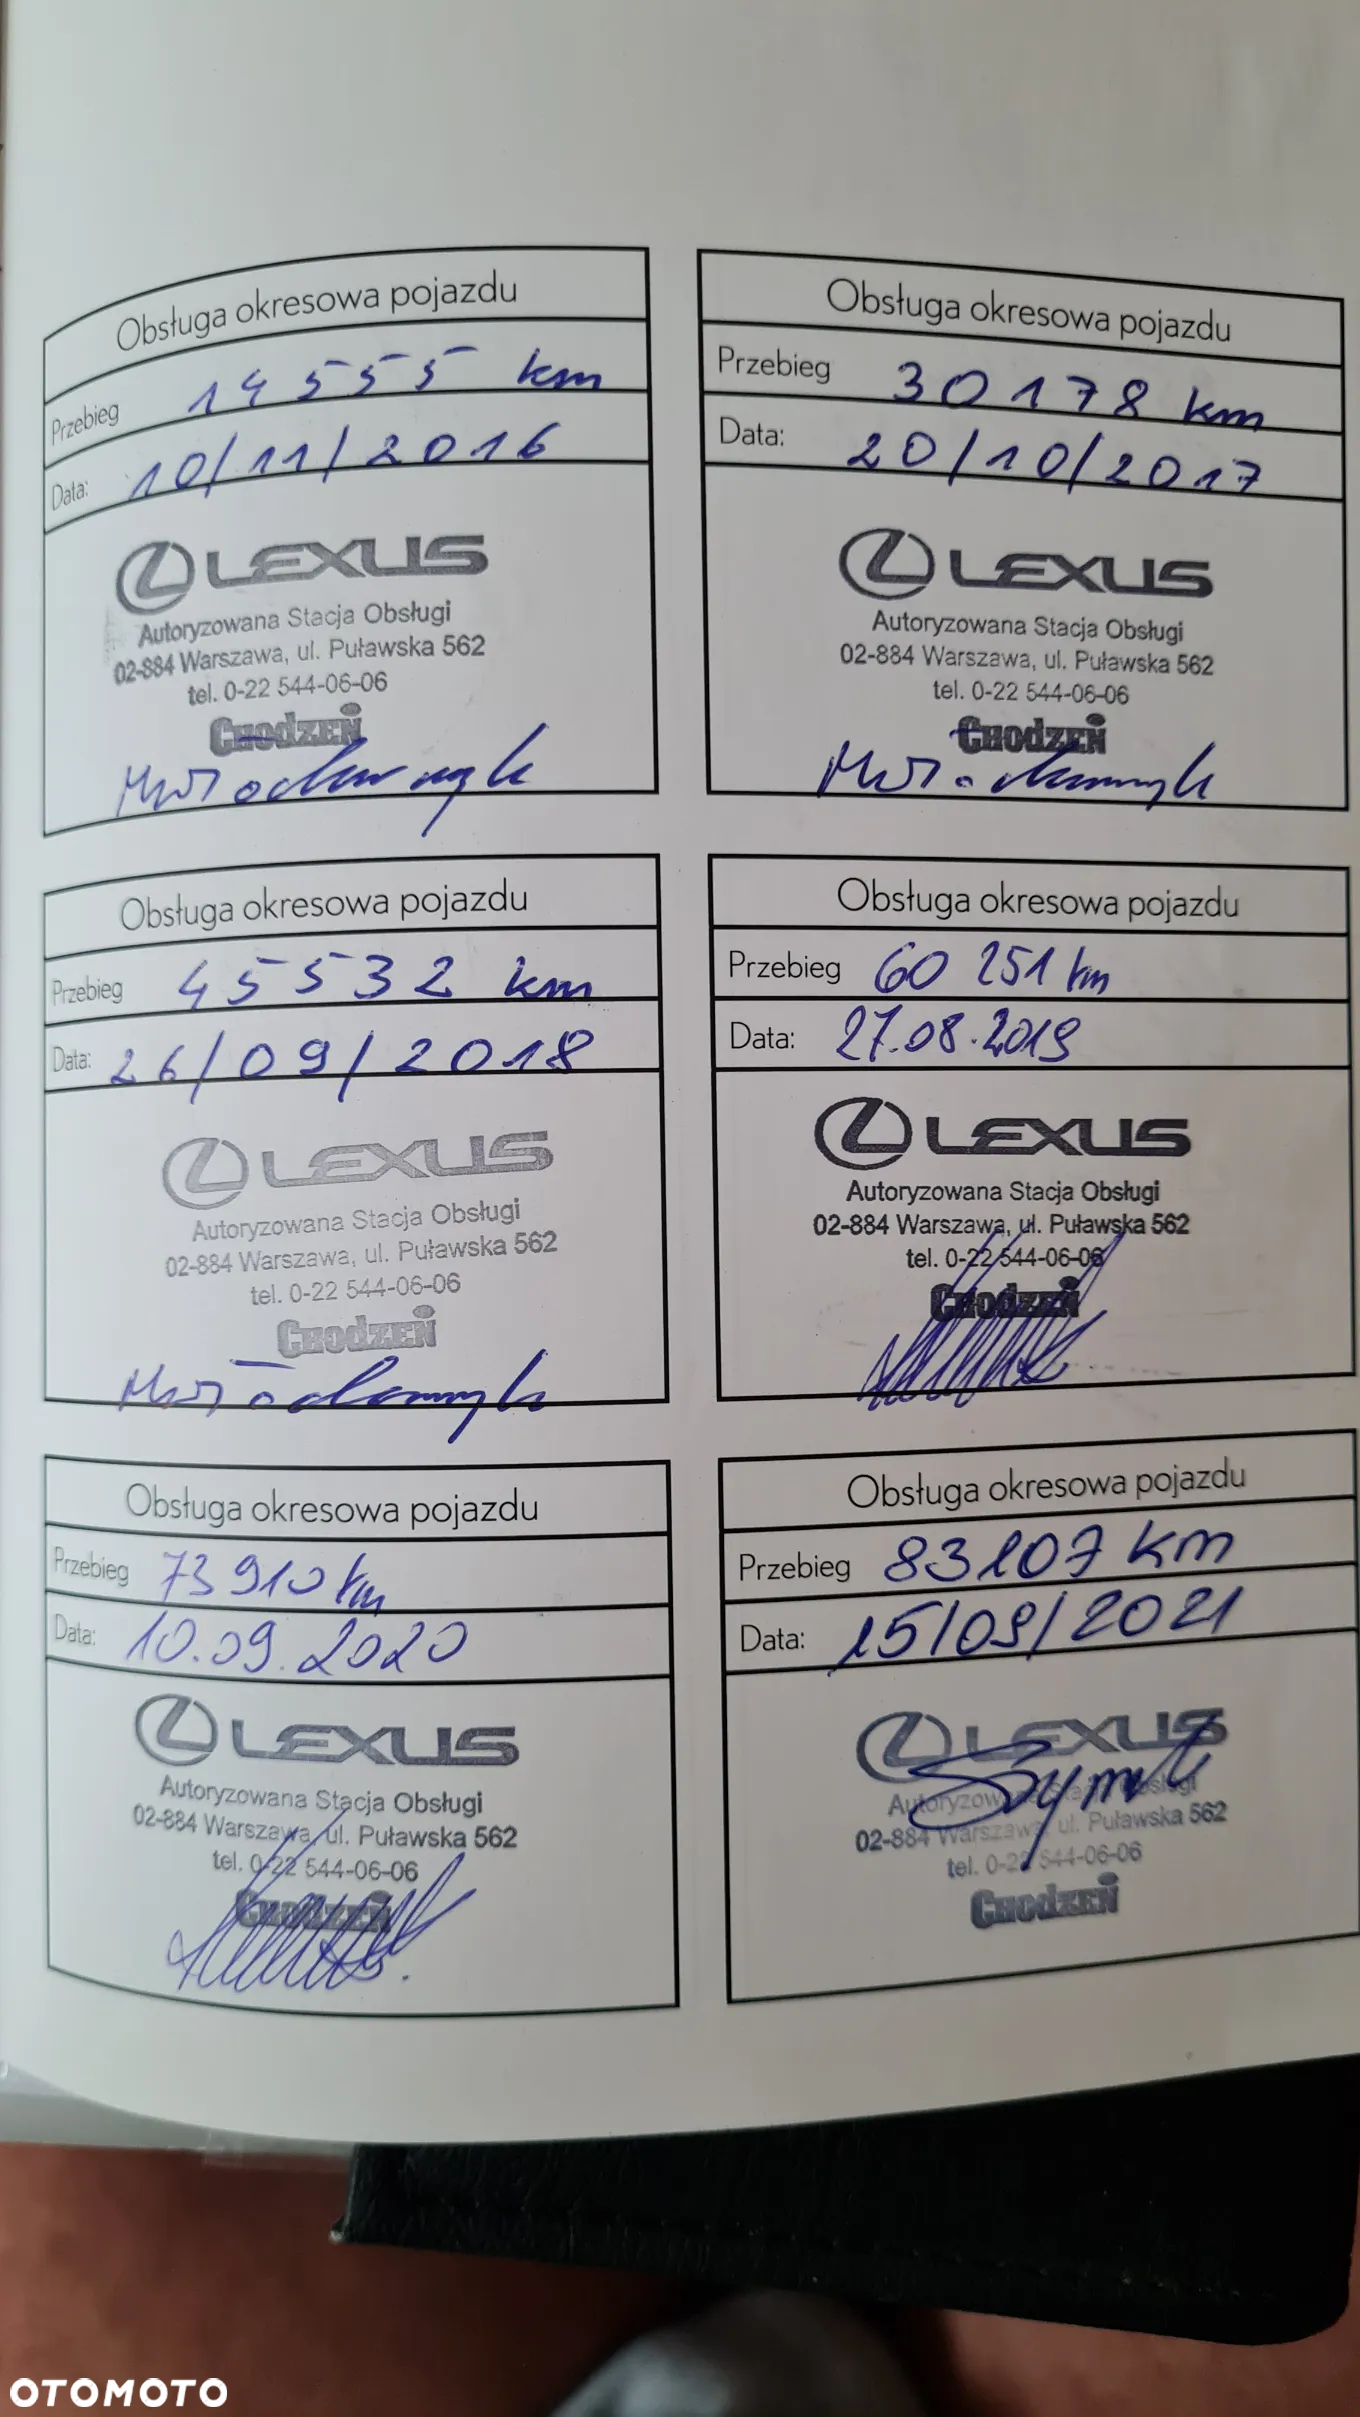 Obsługa okresowa pojazdu
Przebieg 14555 km
Data: 10/11/2016
LEXUS
Autoryzowana Stacja Obsługi
02-884 Warszawa, ul. Puławska 562
tel. 0-22 544-06-06
CHODZEŃ
Obsługa okresowa pojazdu
Przebieg 30178 km
Data: 20/10/2017
LEXUS
Autoryzowana Stacja Obsługi
02-884 Warszawa, ul. Puławska 562
tel. 0-22 544-06-06
CHODZEŃ
Obsługa okresowa pojazdu
Przebieg 45532 km
Data: 26/09/2018
LEXUS
Autoryzowana Stacja Obsługi
02-884 Warszawa, ul. Puławska 562
tel. 0-22 544-06-06
CHODZEŃ
Obsługa okresowa pojazdu
Przebieg 60 251 km
Data: 27.08.2019
LEXUS
Autoryzowana Stacja Obsługi
02-884 Warszawa, ul. Puławska 562
tel. 0-22 544-06-06
CHODZEŃ
Obsługa okresowa pojazdu
Przebieg 73910 km
Data: 10.09.2020
LEXUS
Autoryzowana Stacja Obsługi
02-884 Warszawa, ul. Puławska 562
tel. 0-22 544-06-06
CHODZEŃ
Obsługa okresowa pojazdu
Przebieg 83107 km
Data: 15/09/2021
LEXUS
Autoryzowana Stacja Obsługi
02-884 Warszawa, ul. Puławska 562
tel. 0-22 544-06-06
CHODZEŃ
OTOMOTO